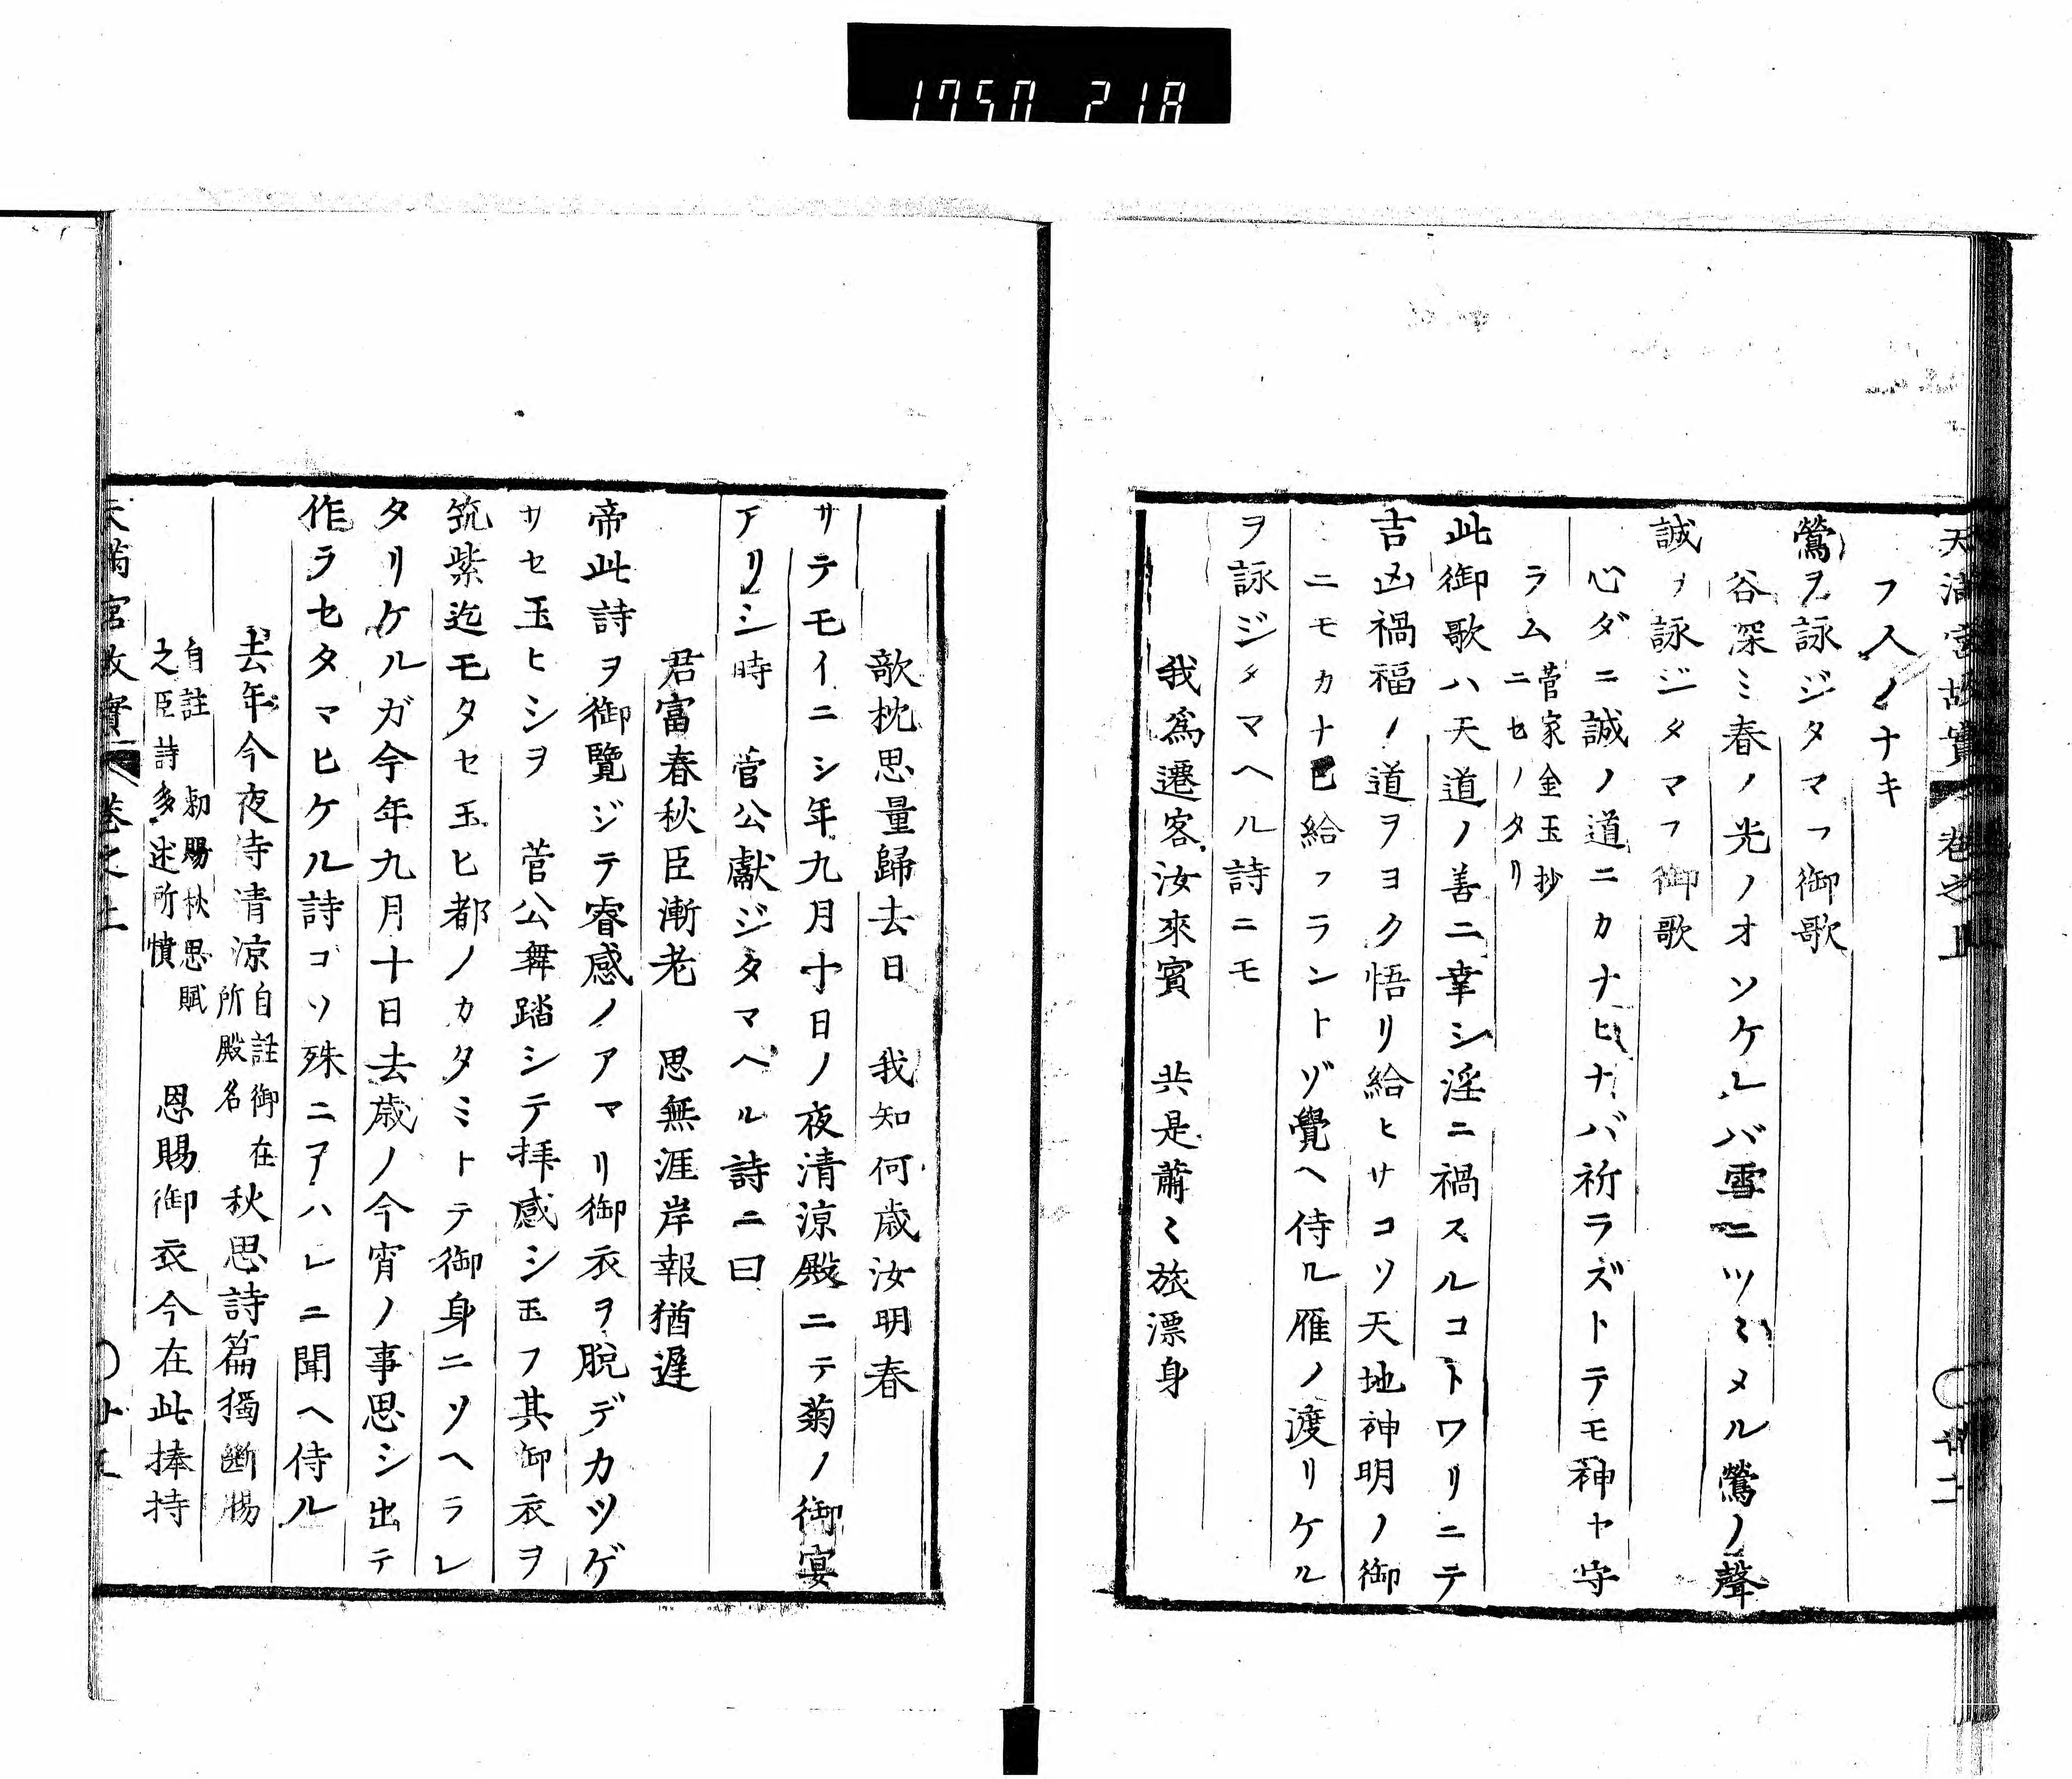 1750 218
天満宮故實 巻之上 廿二
フ人ノナキ
鶯ヲ詠ジタマフ御歌
谷深ミ春ノ光ノオソケレバ雪ニツヽミメル鶯ノ聲
誠ヲ詠ジタマフ御歌
心ダニ誠ノ道ニカナヒナバ祈ラズトテモ神ヤ守
ラム 菅家金玉抄
ニセノタリ
此御歌ハ天道ノ善ニ幸シ淫ニ禍スルコトワリニテ
吉凶禍福ノ道ヲヨク悟リ給ヒサコソ天地神明ノ御
ニモカナ已給フラントゾ覺ヘ侍ル雁ノ渡リケル
ヲ詠ジタマヘル詩ニモ
我爲遷客汝來賓 共是蕭〻旅漂身
欹枕思量歸去日 我知何歳汝明春
サテモイニシ年九月十日ノ夜清涼殿ニテ菊ノ御宴
アリシ時 菅公獻ジタマヘル詩ニ曰
君富春秋臣漸老 思無涯岸報猶遲
帝此詩ヲ御覽ジテ睿感ノアマリ御衣ヲ脱デカツゲ
サセ玉ヒシヲ 菅公舞踏シテ拝感シ玉フ其御衣ヲ
筑紫迄モタセ玉ヒ都ノカタミトテ御身ニソヘラレ
タリケルガ今年九月十日去歳ノ今宵ノ事思シ出テ
作ラセタマヒケル詩コソ殊ニアハレニ聞ヘ侍ル
去年今夜侍清涼 自註御在
所殿名 秋思詩篇獨斷腸
自註 勅賜秋思賦
之臣詩多述所憤 恩賜御衣今在此捧持
天満宮故實 巻之上